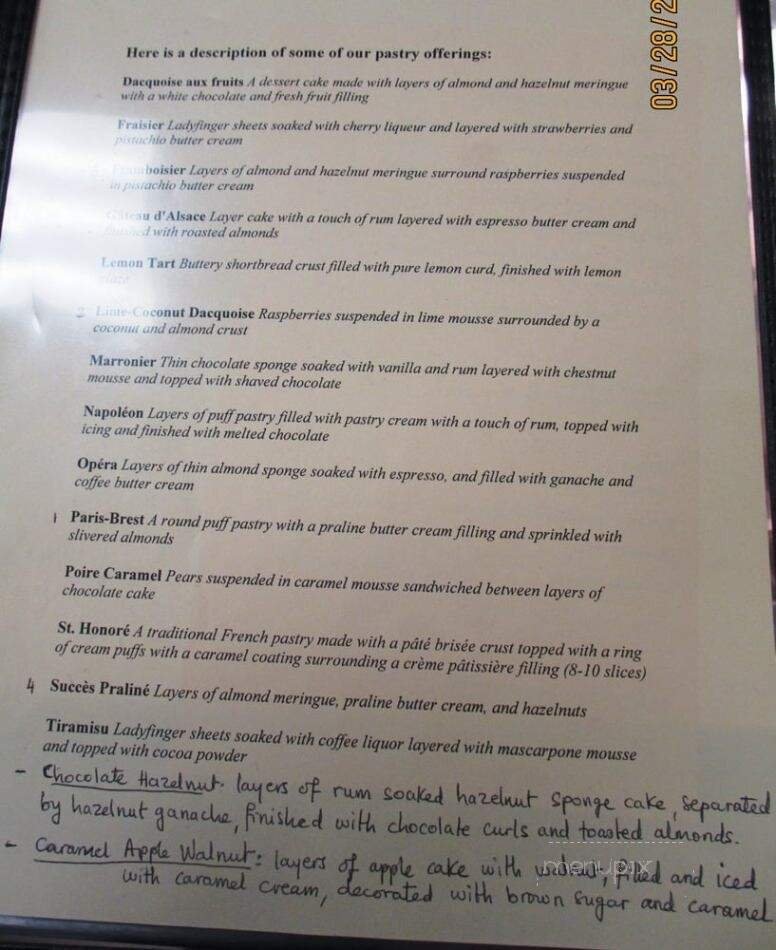 03/28/2
Here is a description of some of our pastry offerings:
Dacquoise aux fruits A dessert cake made with layers of almond and hazelnut meringue
with a white chocolate and fresh fruit filling
Fraisier Ladyfinger sheets soaked with cherry liqueur and layered with strawberries and
pistachio butter cream
Framboisier Layers of almond and hazelnut meringue surround raspberries suspended
in pistachio butter cream
Gâteau d'Alsace Layer cake with a touch of rum layered with espresso butter cream and
finished with roasted almonds
Lemon Tart Buttery shortbread crust filled with pure lemon curd, finished with lemon
glaze
2 Lime-Coconut Dacquoise Raspberries suspended in lime mousse surrounded by a
coconut and almond crust
Marronier Thin chocolate sponge soaked with vanilla and rum layered with chestnut
mousse and topped with shaved chocolate
Napoléon Layers of puff pastry filled with pastry cream with a touch of rum, topped with
icing and finished with melted chocolate
Opéra Layers of thin almond sponge soaked with espresso, and filled with ganache and
coffee butter cream
1 Paris-Brest A round puff pastry with a praline butter cream filling and sprinkled with
slivered almonds
Poire Caramel Pears suspended in caramel mousse sandwiched between layers of
chocolate cake
St. Honoré A traditional French pastry made with a pâté brisée crust topped with a ring
of cream puffs with a caramel coating surrounding a crème pâtissière filling (8-10 slices)
4 Succès Praliné Layers of almond meringue, praline butter cream, and hazelnuts
Tiramisu Ladyfinger sheets soaked with coffee liquor layered with mascarpone mousse
and topped with cocoa powder
- Chocolate Hazelnut- layers of rum soaked hazelnut sponge cake, separated
by hazelnut ganache, finished with chocolate curls and toasted almonds.
- Caramel Apple Walnut: layers of apple cake with walnuts, filled and iced
with caramel cream, decorated with brown sugar and caramel
menupix